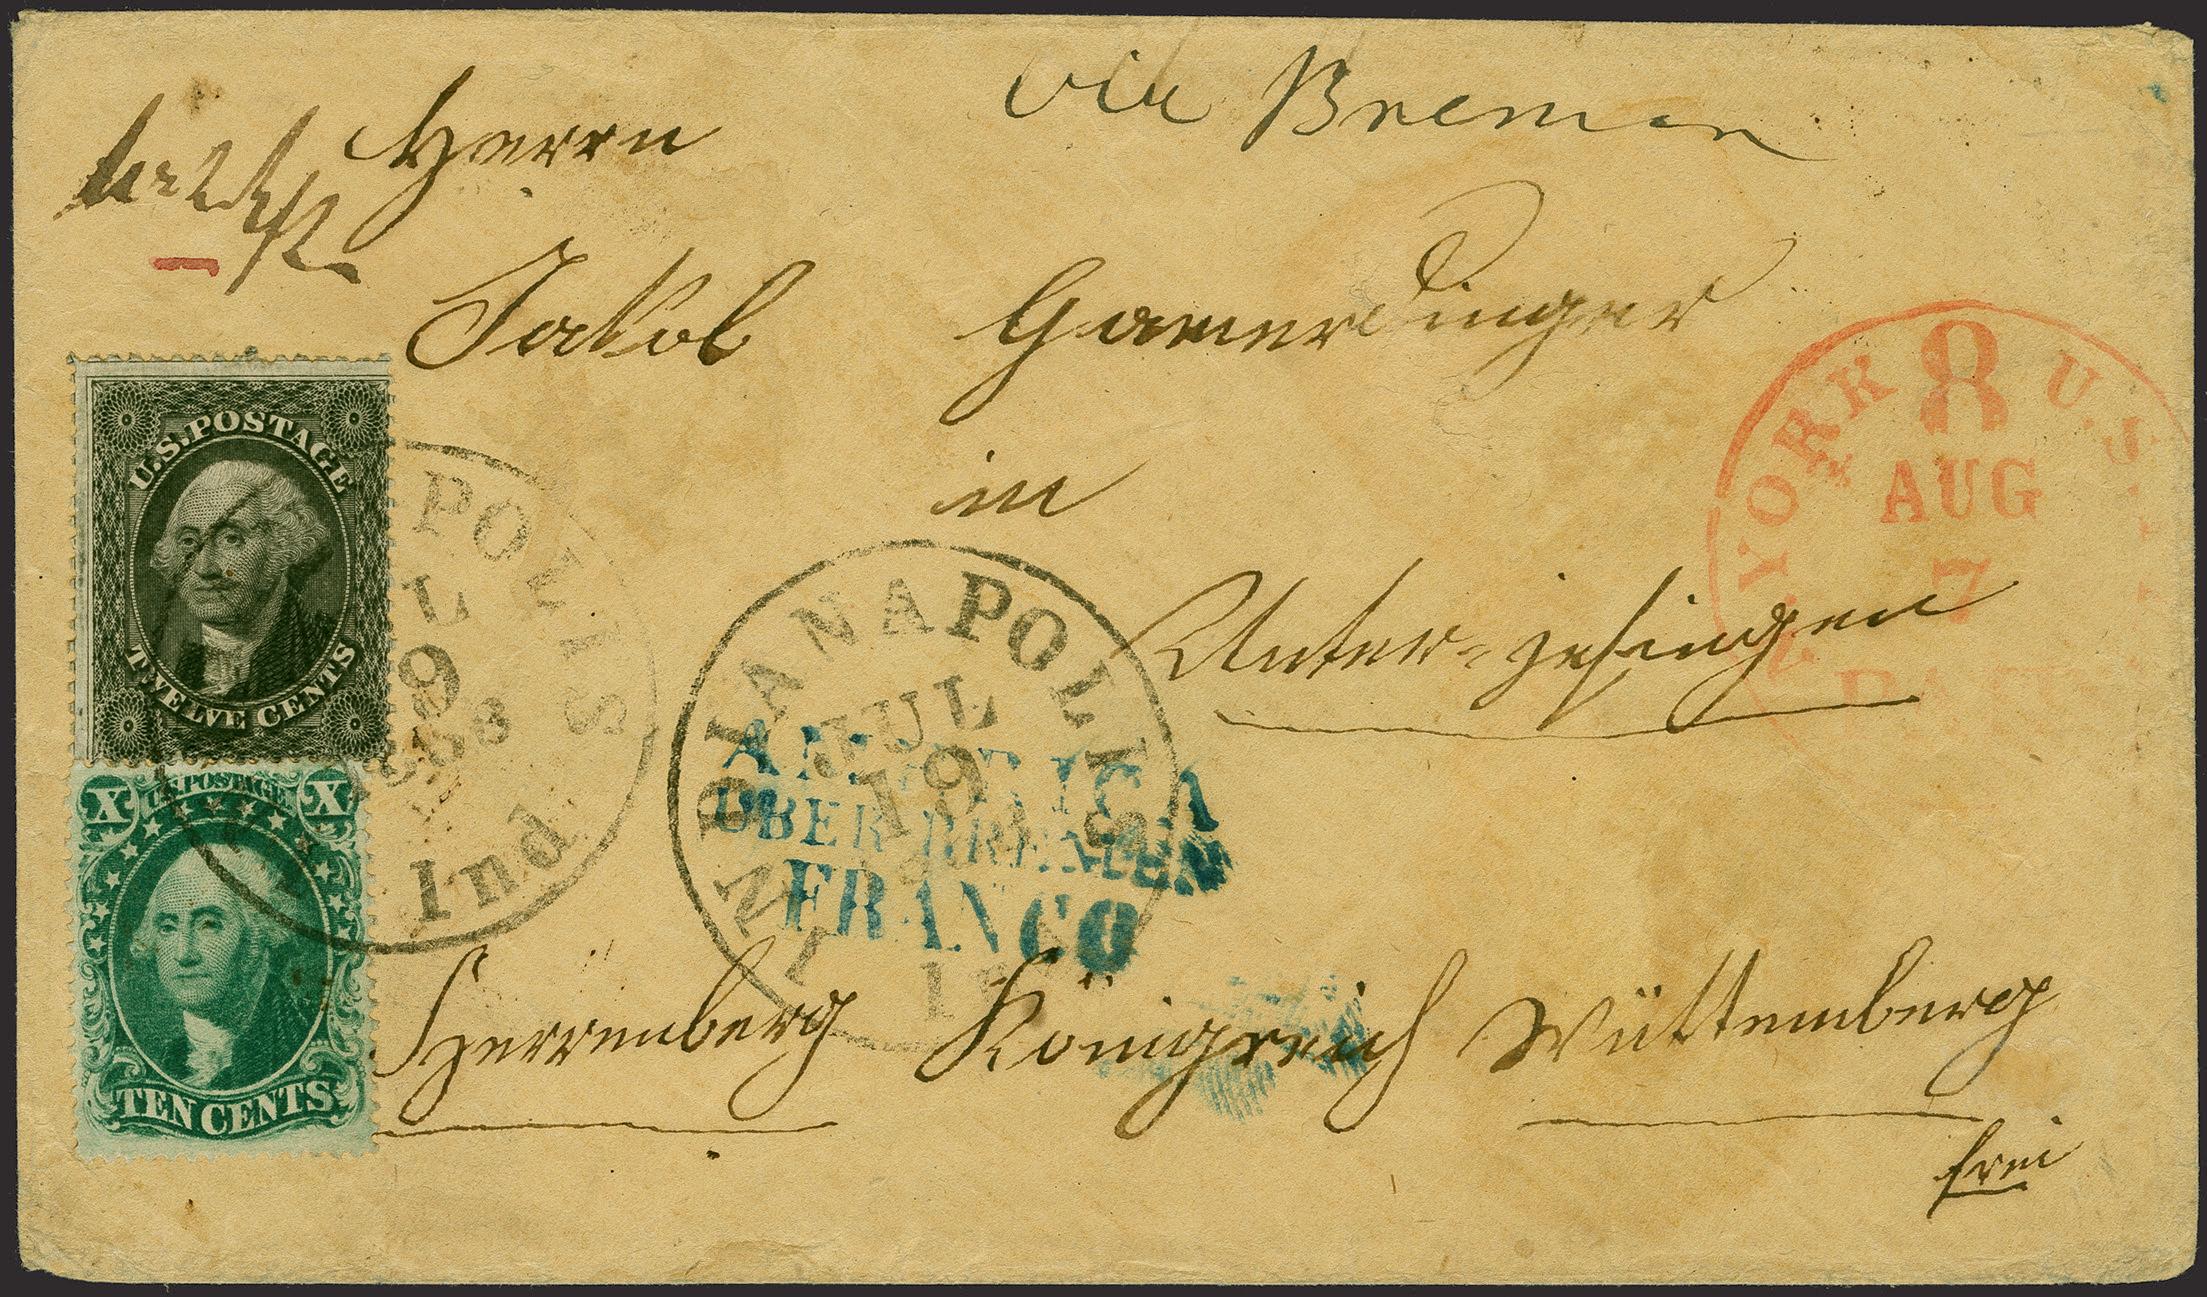 via Bremen
Herrn
Jakob Gamerdinger
in
Unter-jesingen
Herrenberg Königreich Württemberg
frei
U.S. POSTAGE
TWELVE CENTS
X U.S. POSTAGE X
TEN CENTS
POLIS
L
9
Ind
INDIANAPOLIS
JUL
19
AMERICA
ÜBER BREMEN
FRANCO
YORK 8 U.S.
AUG
7
PAID